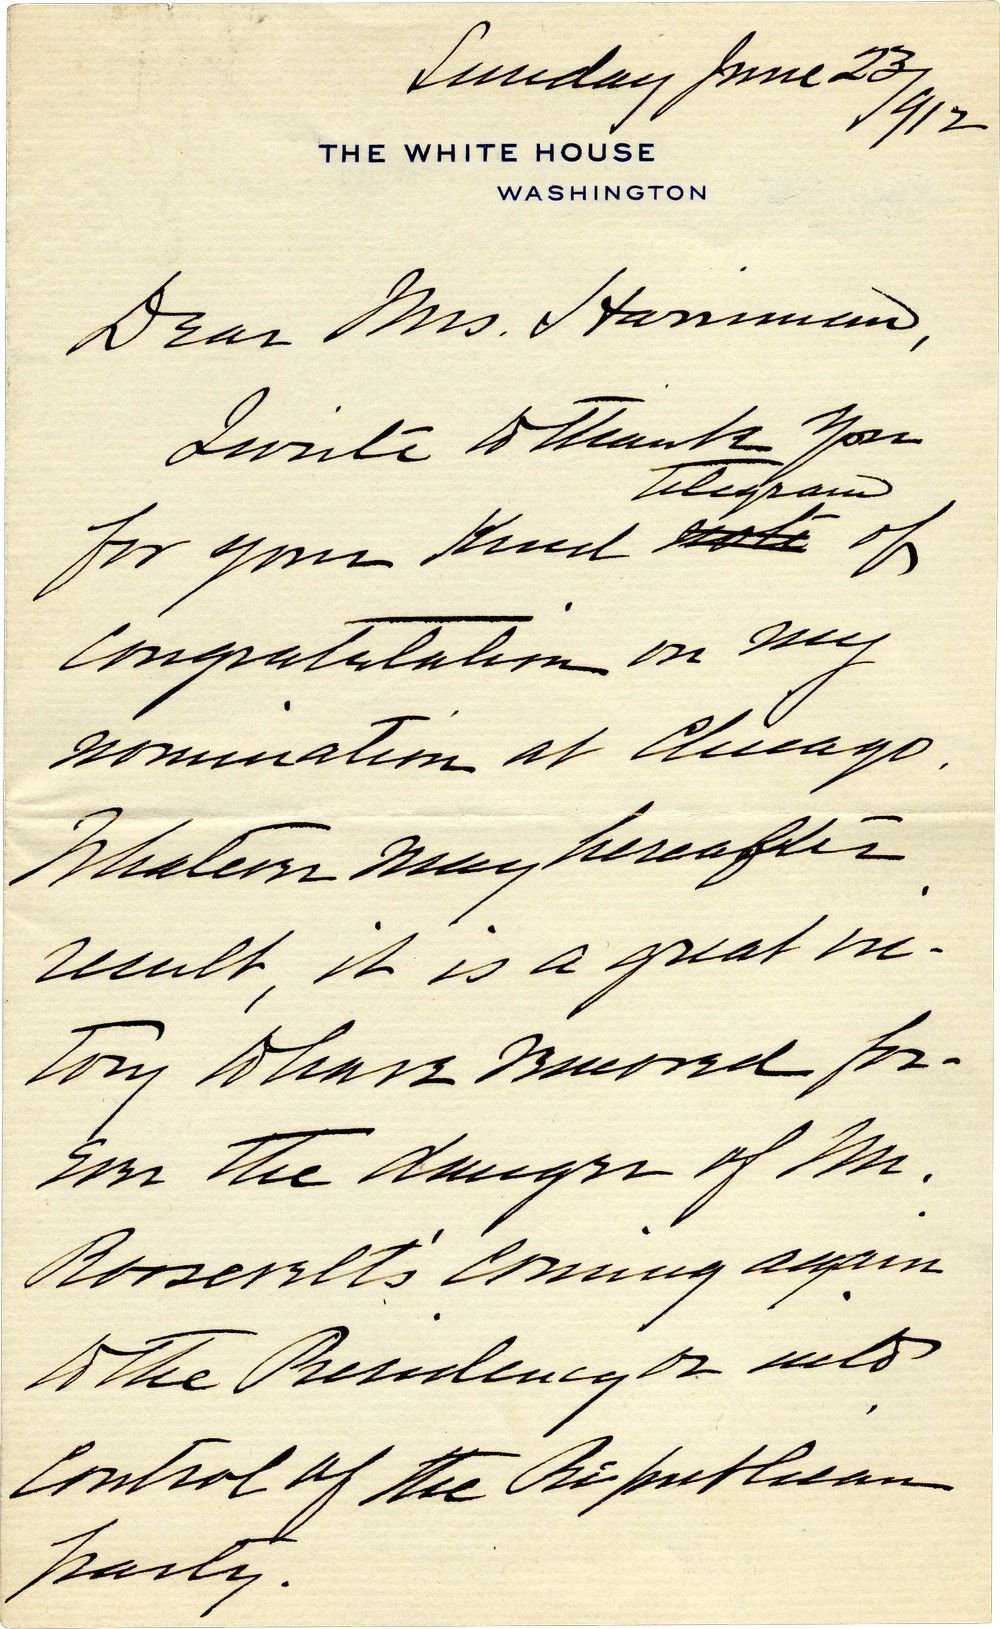 Sunday June 23/1912
THE WHITE HOUSE
WASHINGTON
Dear Mrs. Harriman,
I write to thank you
telegram
for your kind note of
congratulation on my
nomination at Chicago.
Whatever may hereafter
result, it is a great vic-
tory to have removed for-
ever the danger of Mr.
Roosevelt's coming again
to the Presidency or into
control of the Republican
party.